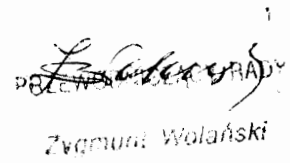 PRZEWODNICZĄCY RADY
Zygmunt Wolański